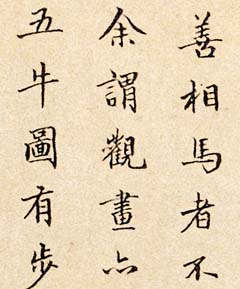 善相馬者不
余謂觀畫亦
五牛圖有步